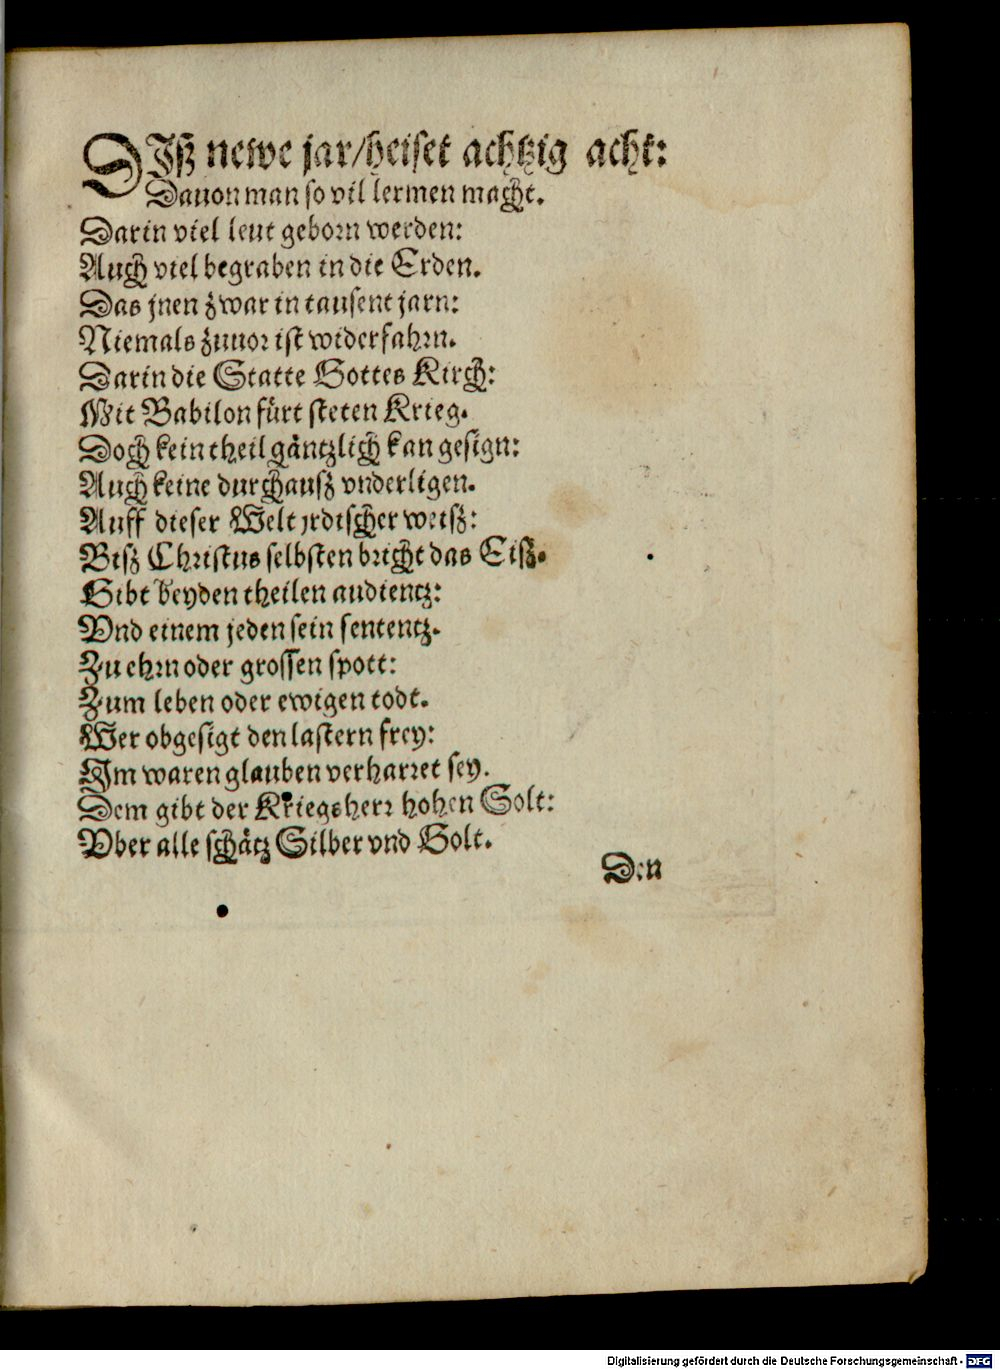 DIſz newe jar/heiſet achtzig acht:
Dauon man ſo vil lermen macht.
Darin viel leut geborn werden:
Auch viel begraben in die Erden.
Das jnen zwar in tauſent jarn:
Niemals zuuor iſt widerfahrn.
Darin die Statte Gottes Kirch:
Mit Babilon fürt ſteten Krieg.
Doch kein theil gäntzlich kan geſign:
Auch keine durchauſz vnderligen.
Auff dieſer Welt jrdiſcher weiſz:
Biſz Chriſtus ſelbſten bricht das Eiſz.
Gibt beyden theilen audientz:
Vnd einem jeden ſein ſententz.
Zu ehrn oder groſſen ſpott:
Zum leben oder ewigen todt.
Wer obgeſigt den laſtern frey:
Im waren glauben verharret ſey.
Dem gibt der Kriegsherr hohen Solt:
Vber alle ſchätz Silber vnd Golt.
Den
Digitalisierung gefördert durch die Deutsche Forschungsgemeinschaft - DFG